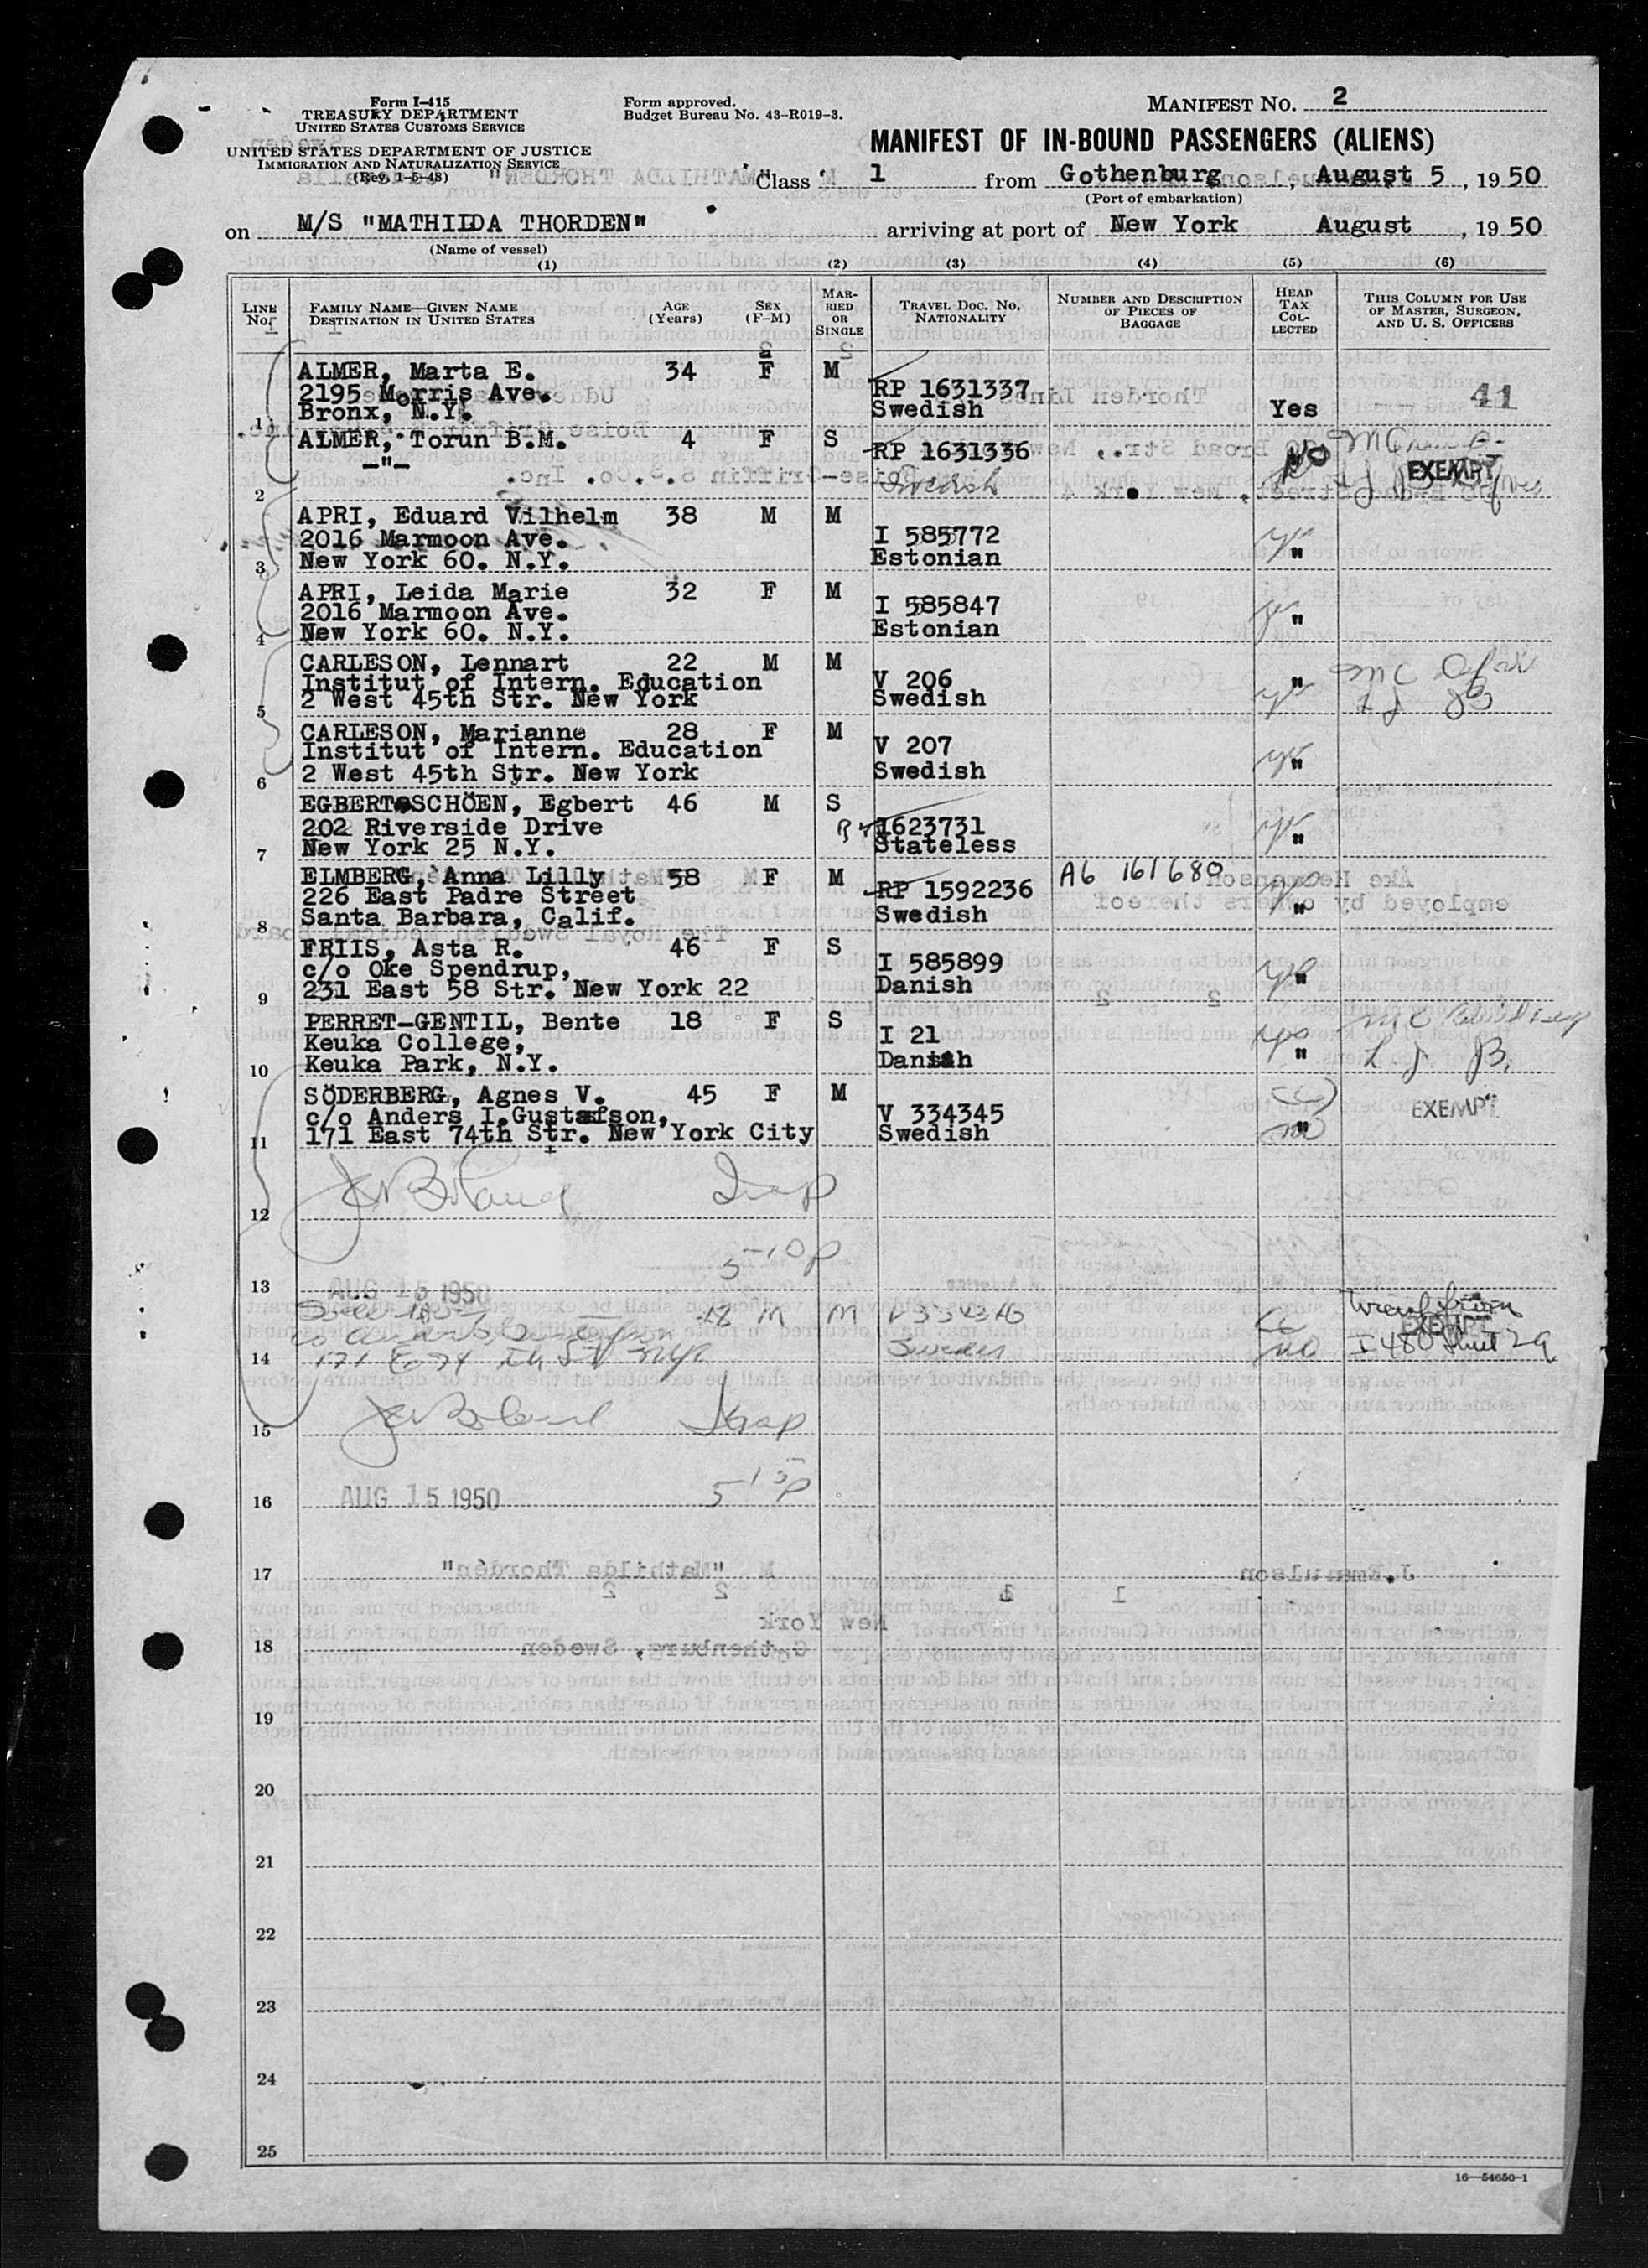 Form I-415
TREASURY DEPARTMENT
UNITED STATES CUSTOMS SERVICE
UNITED STATES DEPARTMENT OF JUSTICE
IMMIGRATION AND NATURALIZATION SERVICE
(Rev. 1-5-48)
Form approved.
Budget Bureau No. 43-R019-3.
MANIFEST NO. 2
MANIFEST OF IN-BOUND PASSENGERS (ALIENS)
Class 1 from Gothenburg, August 5, 1950
(Port of embarkation)
on M/S "MATHILDA THORDEN" arriving at port of New York August, 1950
(Name of vessel)
(1) (2) (3) (4) (5) (6)
LINE No. FAMILY NAME—GIVEN NAME DESTINATION IN UNITED STATES AGE (Years) SEX (F-M) MARRIED OR SINGLE TRAVEL DOC. NO. NATIONALITY NUMBER AND DESCRIPTION OF PIECES OF BAGGAGE HEAD TAX COLLECTED THIS COLUMN FOR USE OF MASTER, SURGEON, AND U. S. OFFICERS
ALMER, Marta E. 34 F M
2195 Morris Ave. RP 1631337 41
1 Bronx, N.Y. Swedish Yes
ALMER, Torun B.M. 4 F S RP 1631336 No
-"- Swedish EXEMPT
2
APRI, Eduard Vilhelm 38 M M
2016 Marmoon Ave. I 585772
3 New York 60. N.Y. Estonian "
APRI, Leida Marie 32 F M
2016 Marmoon Ave. I 585847
4 New York 60. N.Y. Estonian "
CARLESON, Lennart 22 M M
Institut of Intern. Education V 206 "
5 2 West 45th Str. New York Swedish
CARLESON, Marianne 28 F M
Institut of Intern. Education V 207
6 2 West 45th Str. New York Swedish "
EGBERT SCHÖEN, Egbert 46 M S
202 Riverside Drive 1623731
7 New York 25 N.Y. Stateless "
ELMBERG, Anna Lilly 58 F M A6 161680
226 East Padre Street RP 1592236
8 Santa Barbara, Calif. Swedish "
FRIIS, Asta R. 46 F S
c/o Oke Spendrup, I 585899
9 231 East 58 Str. New York 22 Danish "
PERRET-GENTIL, Bente 18 F S
Keuka College, I 21
10 Keuka Park, N.Y. Danish "
SÖDERBERG, Agnes V. 45 F M EXEMPT
c/o Anders I.Gustafson, V 334345
11 171 East 74th Str. New York City Swedish "
12
5-10p
13 AUG 15 1950
M M V 334346
EXEMPT
14 171 E 74 Sweden no I 480
15
16 AUG 15 1950 5 15p
17
18
19
20
21
22
23
24
25
16—54650-1